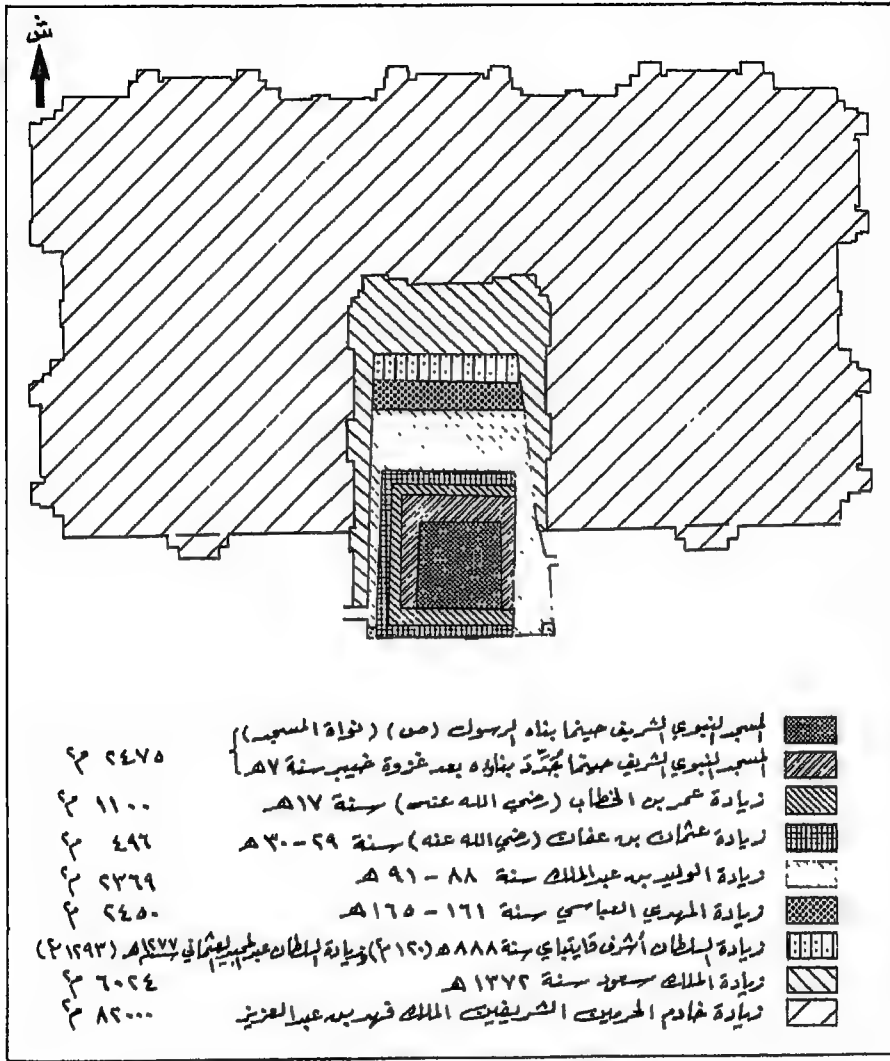 ش
المسجد النبوي الشريف حينما بناه الرسول (ص) (نواة المسجد)
المسجد النبوي الشريف حينما جُدِّد بناؤه بعد غزوة خيبر سنة ٧هـ ٢٤٧٥ م٢
زيادة عمر بن الخطاب (رضي الله عنه) سنة ١٧هـ ١١٠٠ م٢
زيادة عثمان بن عفان (رضي الله عنه) سنة ٢٩-٣٠هـ ٤٩٦ م٢
زيادة الوليد بن عبدالملك سنة ٨٨-٩١هـ ٢٣٦٩ م٢
زيادة المهدي العباسي سنة ١٦١-١٦٥هـ ٢٤٥٠ م٢
زيادة السلطان أشرف قايتباي سنة ٨٨٨هـ (١٢٠م٢) وزيادة السلطان عبدالمجيد العثماني سنة ١٢٧٧هـ (١٢٩٣م٢)
زيادة الملك سعود سنة ١٣٧٢هـ ٦٠٢٤ م٢
زيادة خادم الحرمين الشريفين الملك فهد بن عبدالعزيز ٨٢٠٠٠ م٢